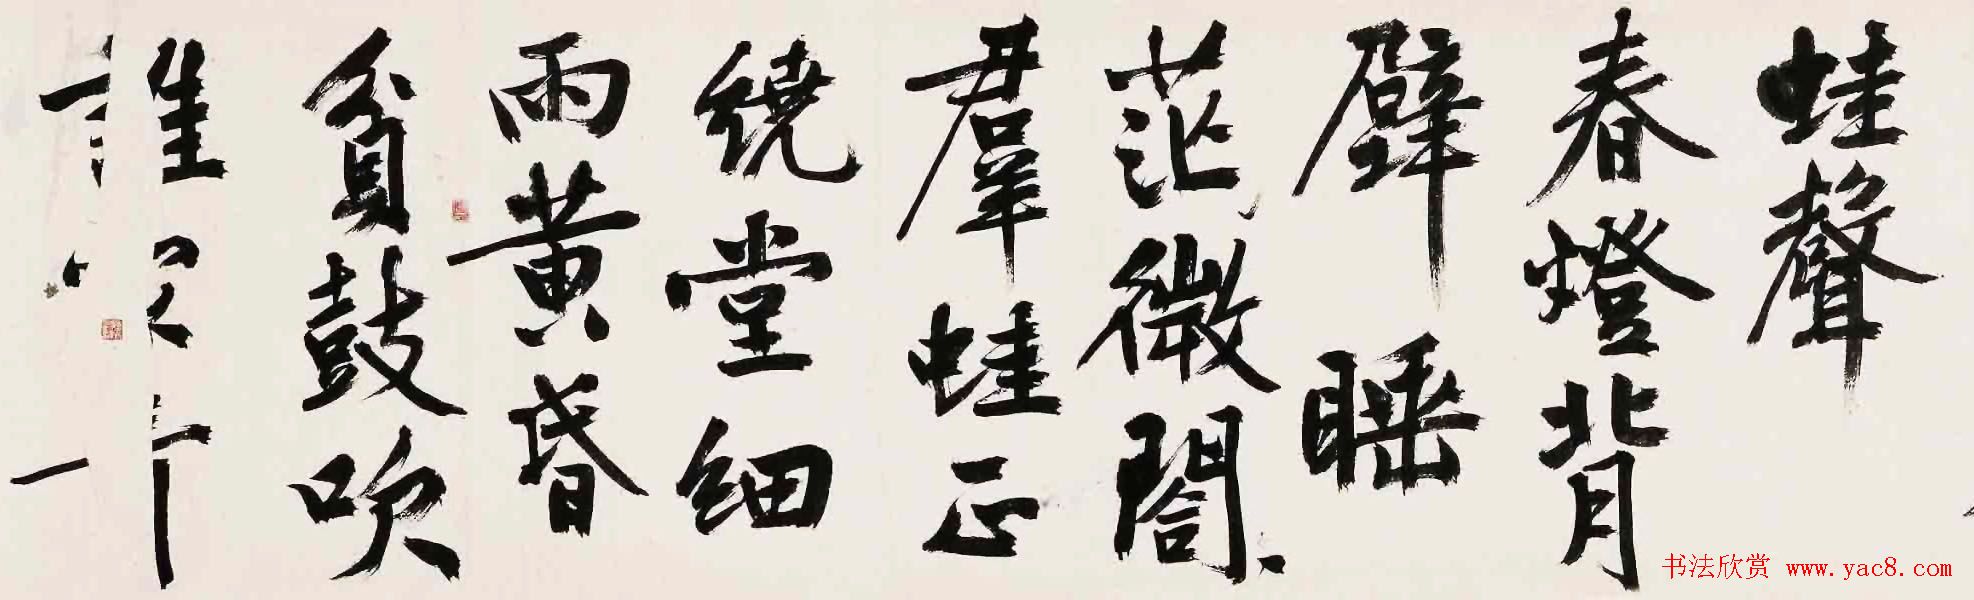 蛙聲
春燈背
壁睡
茫微閤、
羣蛙正
繞堂細
雨黃昏
貧鼓吹
誰
书法欣赏 www.yac8.com